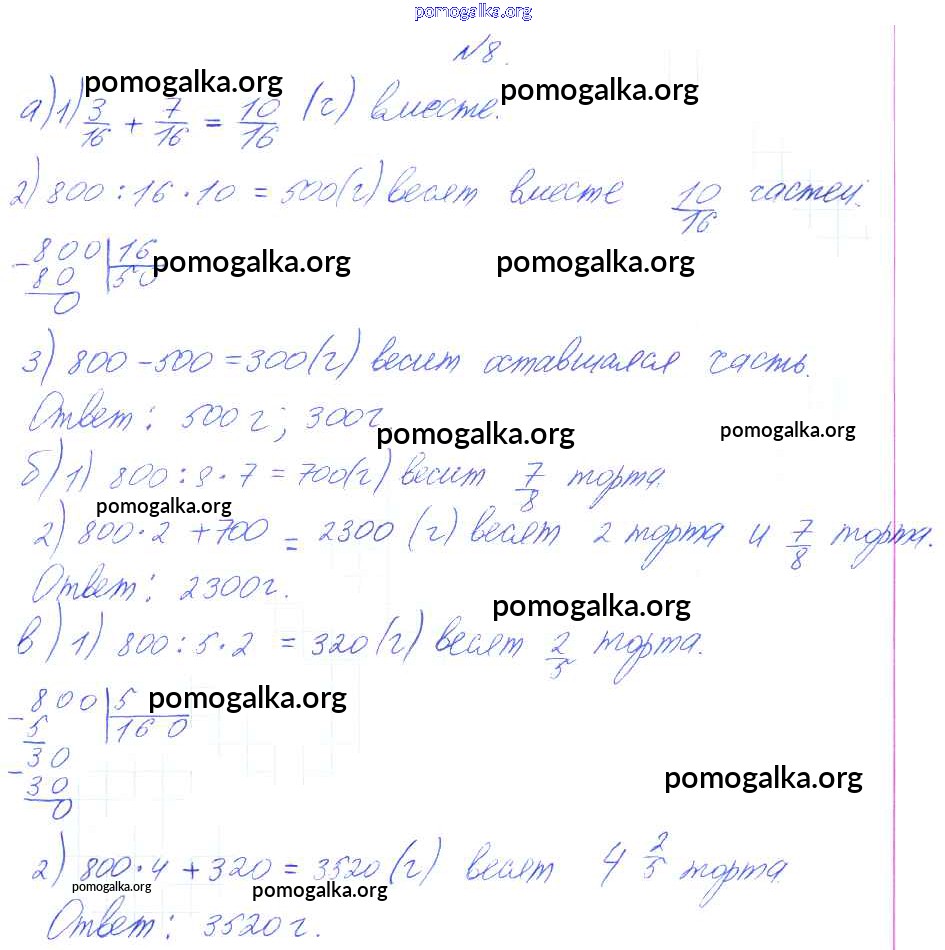 pomogalka.org
№8.
pomogalka.org pomogalka.org
а) 1) 3/16 + 7/16 = 10/16 (г) вместе.
2) 800 : 16 · 10 = 500 (г) весят вместе 10/16 частей.
- 800 | 16
80 | 50
0
pomogalka.org pomogalka.org
3) 800 - 500 = 300 (г) весит оставшаяся часть.
Ответ: 500 г; 300 г
pomogalka.org pomogalka.org
б) 1) 800 : 8 · 7 = 700 (г) весит 7/8 торта.
pomogalka.org
2) 800 · 2 + 700 = 2300 (г) весят 2 торта и 7/8 торта.
Ответ: 2300 г.
pomogalka.org
в) 1) 800 : 5 · 2 = 320 (г) весят 2/5 торта.
- 800 | 5
5 | 160
30
- 30
0
pomogalka.org
pomogalka.org
2) 800 · 4 + 320 = 3520 (г) весят 4 2/5 торта
pomogalka.org pomogalka.org
Ответ: 3520 г.